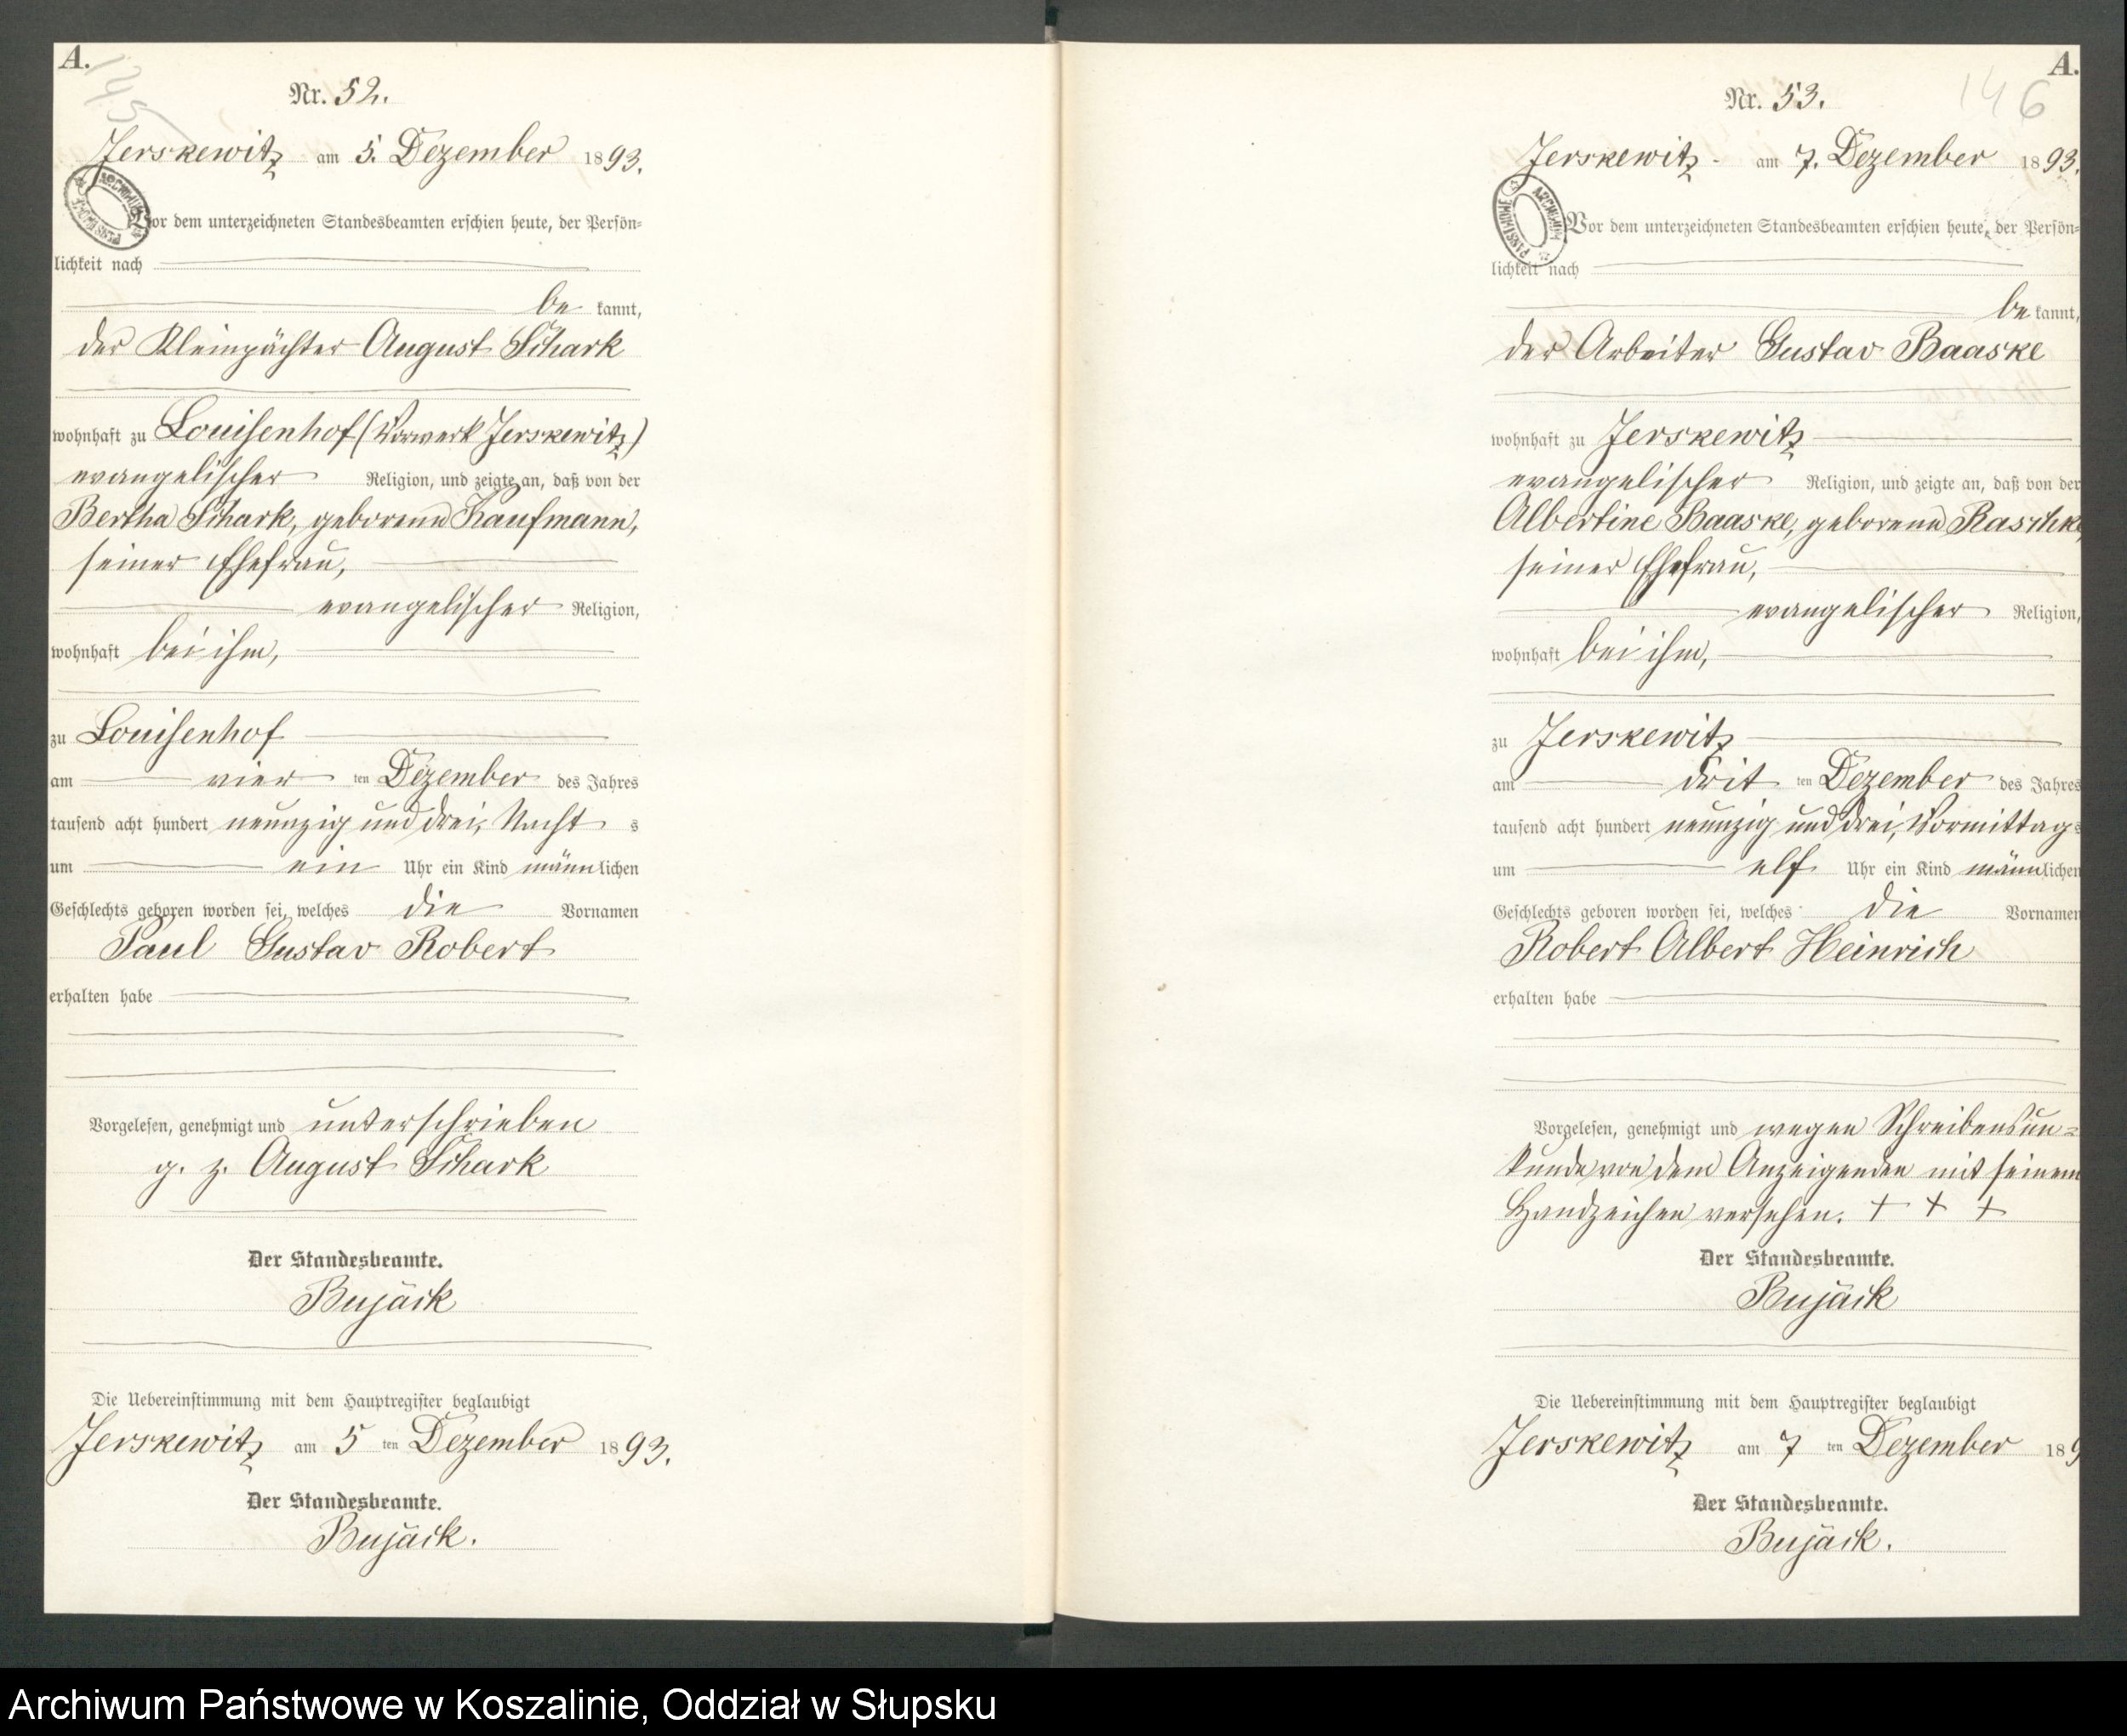 A.
145
Nr. 52.
Jerskewitz am 5. Dezember 1893.
Vor dem unterzeichneten Standesbeamten erschien heute, der Persön-
lichkeit nach
be kannt,
der Kleinpächter August Schark
wohnhaft zu Louisenhof (Vorwerk Jerskewitz)
evangelischer Religion, und zeigte an, daß von der
Bertha Schark, geborene Kaufmann,
seiner Ehefrau,
evangelischer Religion,
wohnhaft bei ihm,
zu Louisenhof
am vier ten Dezember des Jahres
tausend acht hundert neunzig und drei, Nacht s
um ein Uhr ein Kind männlichen
Geschlechts geboren worden sei, welches die Vornamen
Paul Gustav Robert
erhalten habe
Vorgelesen, genehmigt und unterschrieben
g. z. August Schark
Der Standesbeamte.
Bujäck
Die Uebereinstimmung mit dem Hauptregister beglaubigt
Jerskewitz am 5 ten Dezember 1893.
Der Standesbeamte.
Bujäck.
A.
146
Nr. 53.
Jerskewitz am 7. Dezember 1893.
ARCHIWUM PAŃSTWOWE
Vor dem unterzeichneten Standesbeamten erschien heute, der Persön-
lichkeit nach
be kannt,
der Arbeiter Gustav Baaske
wohnhaft zu Jerskewitz
evangelischer Religion, und zeigte an, daß von der
Albertine Baaske, geborene Raschke,
seiner Ehefrau,
evangelischer Religion,
wohnhaft bei ihm,
zu Jerskewitz
am drit ten Dezember des Jahres
tausend acht hundert neunzig und drei, Vormittag s
um elf Uhr ein Kind männlichen
Geschlechts geboren worden sei, welches die Vornamen
Robert Albert Heinrich
erhalten habe
Vorgelesen, genehmigt und wegen Schreibensun-
kunde von dem Anzeigenden mit seinem
Handzeichen versehen. + + +
Der Standesbeamte.
Bujäck
Die Uebereinstimmung mit dem Hauptregister beglaubigt
Jerskewitz am 7 ten Dezember 189
Der Standesbeamte.
Bujäck.
Archiwum Państwowe w Koszalinie, Oddział w Słupsku